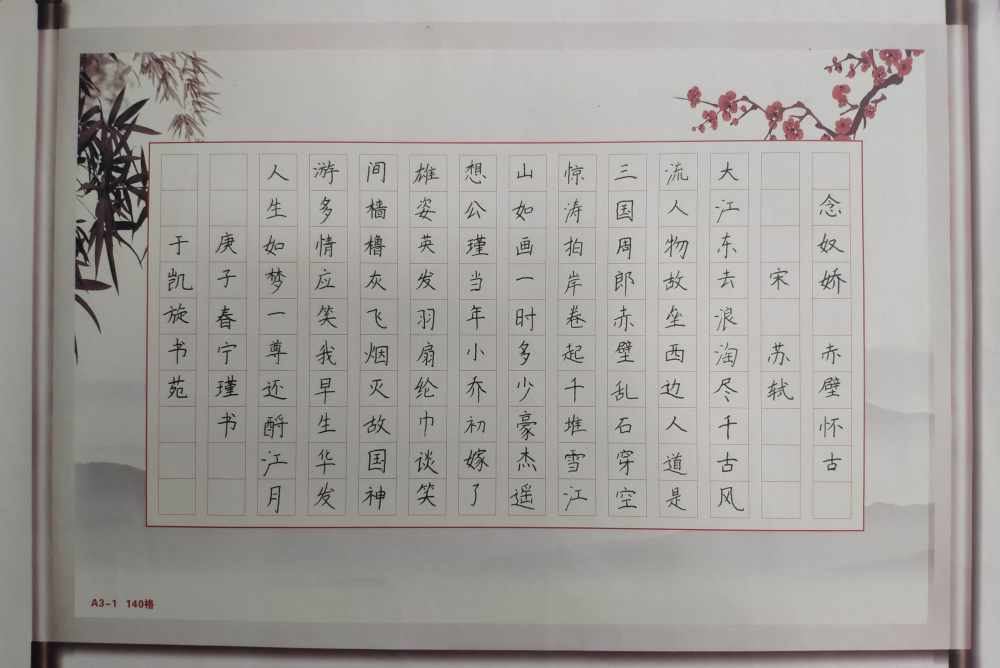 念奴娇 赤壁怀古
宋 苏轼
大江东去浪淘尽千古风
流人物故垒西边人道是
三国周郎赤壁乱石穿空
惊涛拍岸卷起千堆雪江
山如画一时多少豪杰遥
想公瑾当年小乔初嫁了
雄姿英发羽扇纶巾谈笑
间樯橹灰飞烟灭故国神
游多情应笑我早生华发
人生如梦一尊还酹江月
庚子春宁瑾书
于凯旋书苑
A3-1 140格